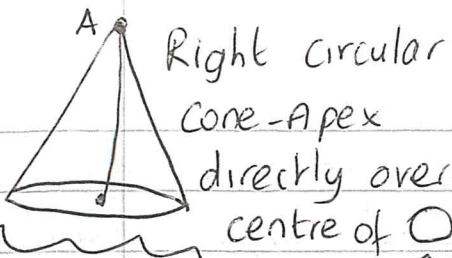 A
Right circular
cone-Apex
directly over
centre of O